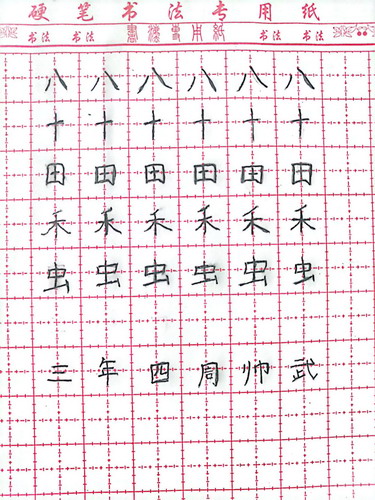 硬笔书法专用纸
书法 书法 書法專用紙 书法 书法
八八八八八八
十十十十十十
田田田田田田
禾禾禾禾禾禾
虫虫虫虫虫虫
三年四周帅武